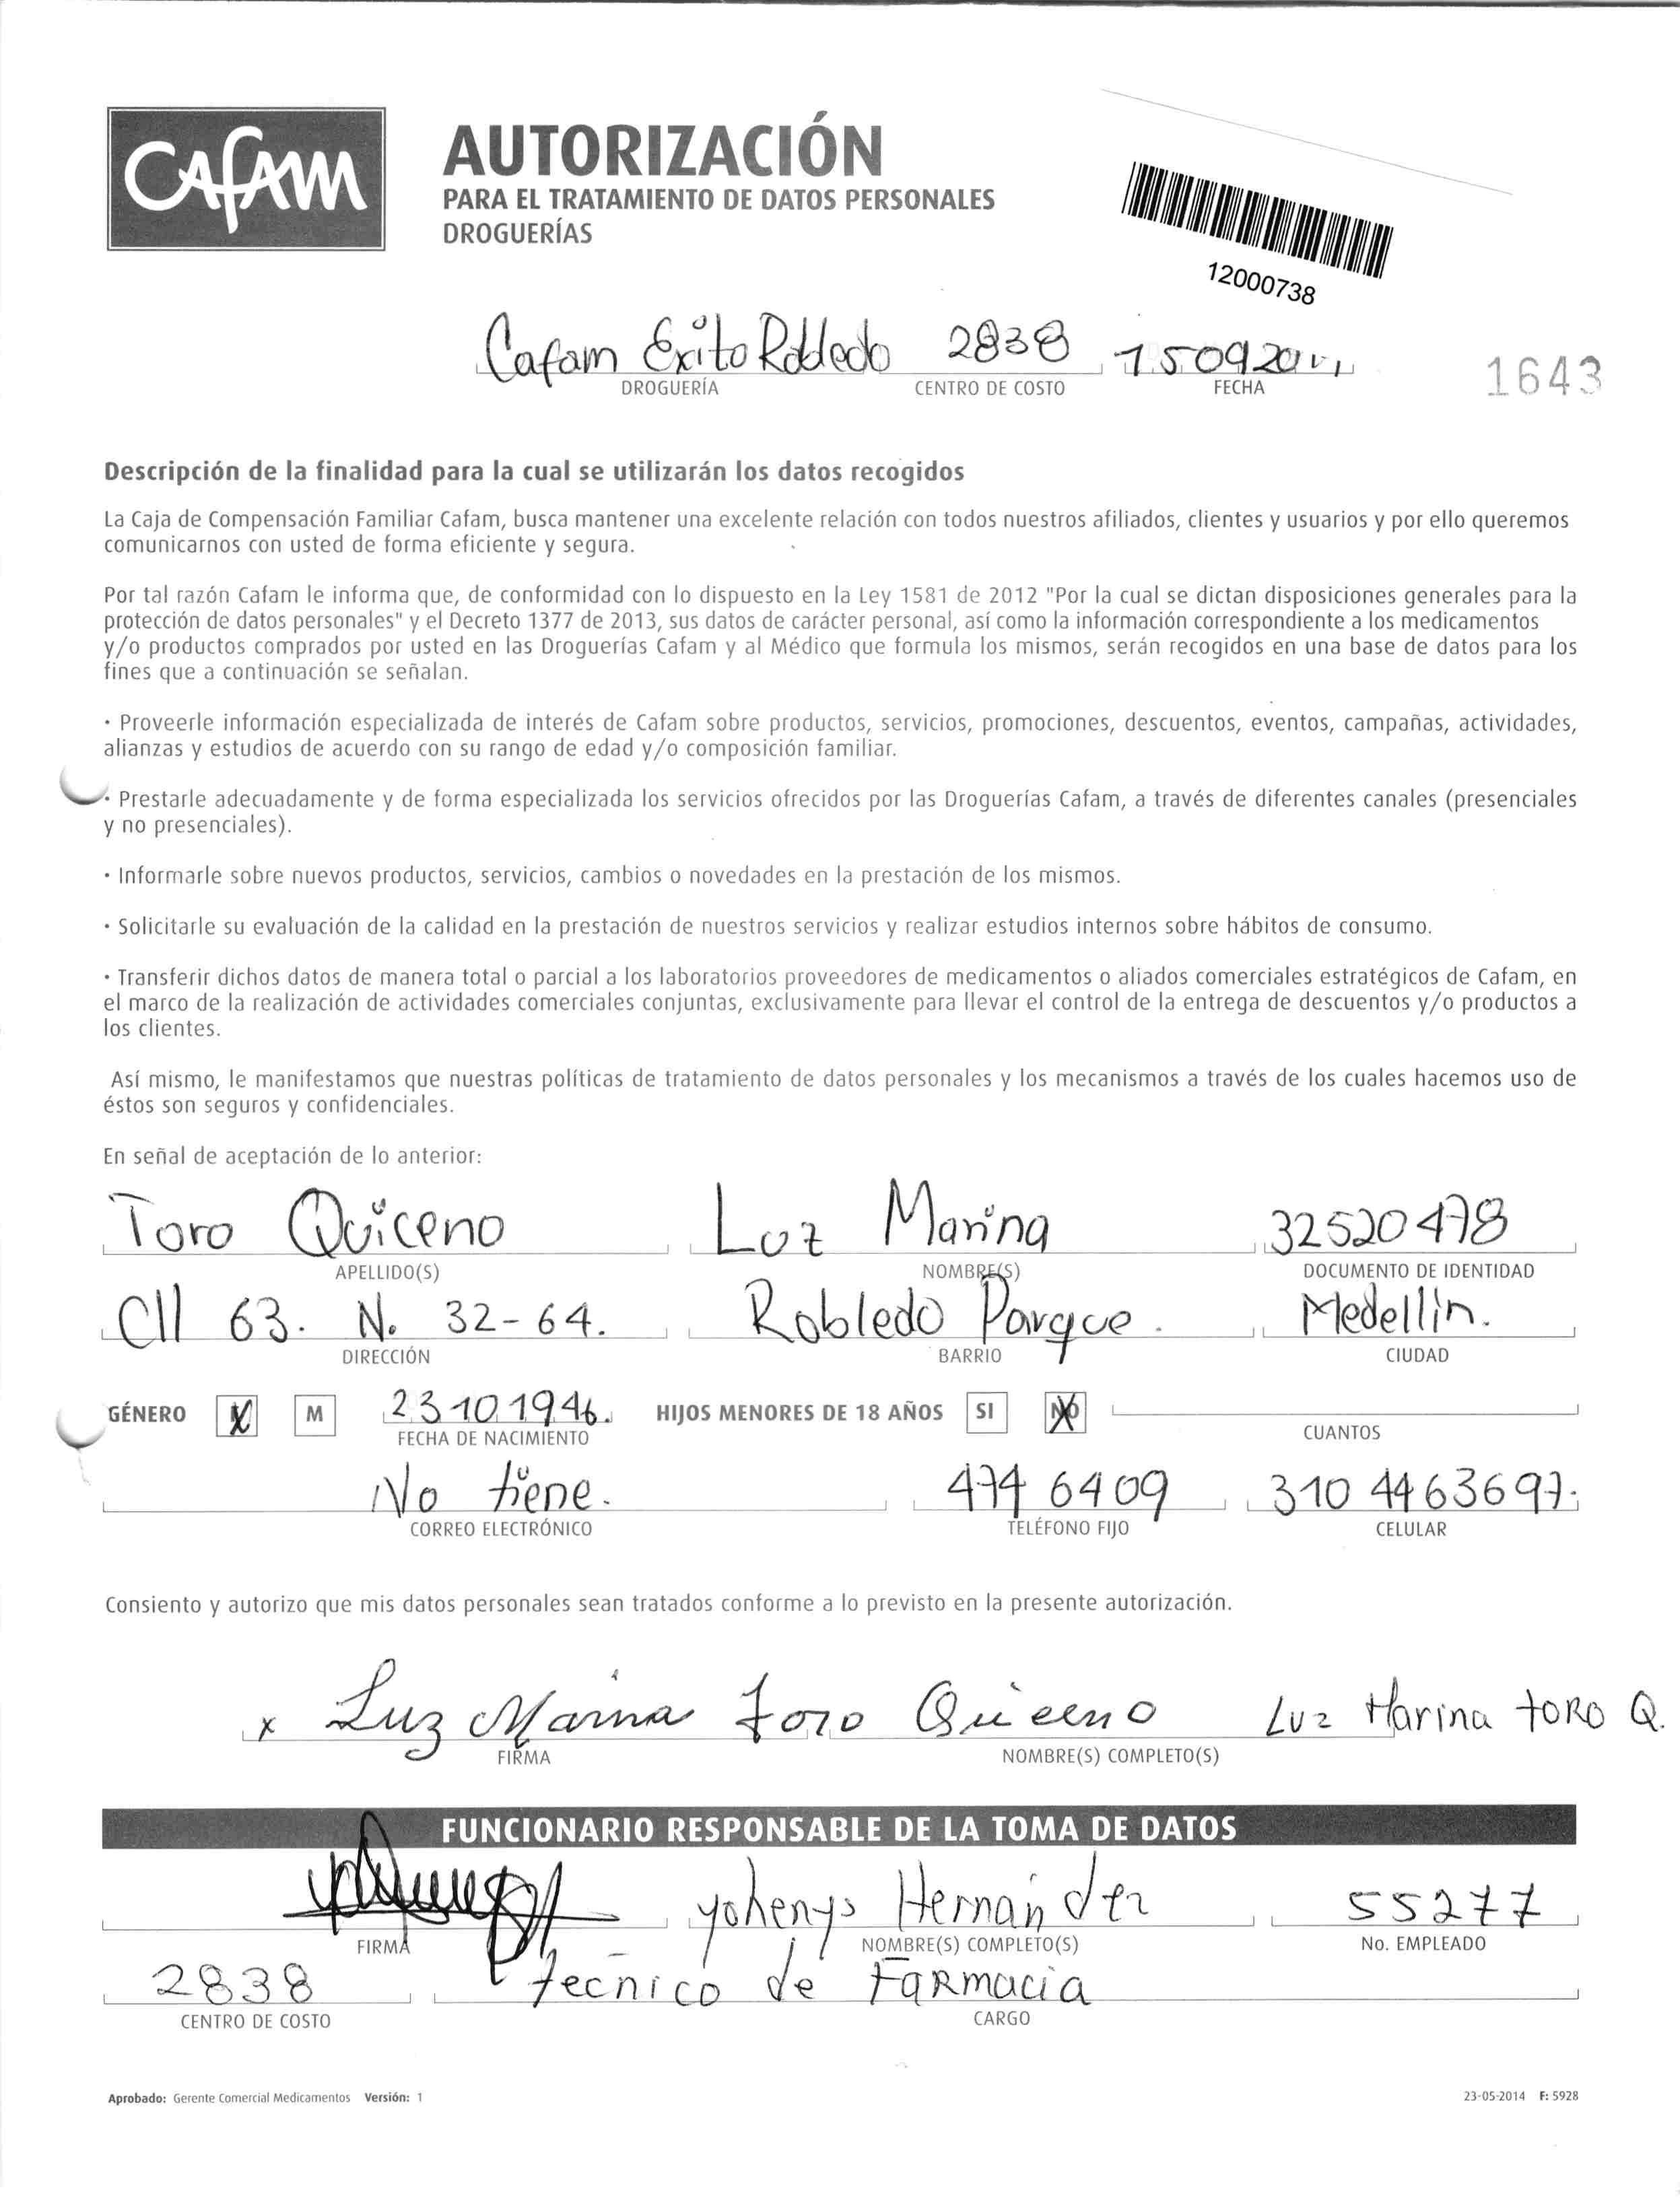 CAFAM
AUTORIZACIÓN
PARA EL TRATAMIENTO DE DATOS PERSONALES
DROGUERÍAS
12000738
Cafam Exito Robledo 2838
DROGUERÍA CENTRO DE COSTO FECHA
1643
Descripción de la finalidad para la cual se utilizarán los datos recogidos
La Caja de Compensación Familiar Cafam, busca mantener una excelente relación con todos nuestros afiliados, clientes y usuarios y por ello queremos
comunicarnos con usted de forma eficiente y segura.
Por tal razón Cafam le informa que, de conformidad con lo dispuesto en la Ley 1581 de 2012 "Por la cual se dictan disposiciones generales para la
protección de datos personales" y el Decreto 1377 de 2013, sus datos de carácter personal, así como la información correspondiente a los medicamentos
y/o productos comprados por usted en las Droguerías Cafam y al Médico que formula los mismos, serán recogidos en una base de datos para los
fines que a continuación se señalan.
· Proveerle información especializada de interés de Cafam sobre productos, servicios, promociones, descuentos, eventos, campañas, actividades,
alianzas y estudios de acuerdo con su rango de edad y/o composición familiar.
· Prestarle adecuadamente y de forma especializada los servicios ofrecidos por las Droguerías Cafam, a través de diferentes canales (presenciales
y no presenciales).
· Informarle sobre nuevos productos, servicios, cambios o novedades en la prestación de los mismos.
· Solicitarle su evaluación de la calidad en la prestación de nuestros servicios y realizar estudios internos sobre hábitos de consumo.
· Transferir dichos datos de manera total o parcial a los laboratorios proveedores de medicamentos o aliados comerciales estratégicos de Cafam, en
el marco de la realización de actividades comerciales conjuntas, exclusivamente para llevar el control de la entrega de descuentos y/o productos a
los clientes.
Así mismo, le manifestamos que nuestras políticas de tratamiento de datos personales y los mecanismos a través de los cuales hacemos uso de
éstos son seguros y confidenciales.
En señal de aceptación de lo anterior:
Toro Quiceno Luz Marina 32520478
APELLIDO(S) NOMBRE(S) DOCUMENTO DE IDENTIDAD
Cll 63. N. 32-64. Robledo Parque. Medellin.
DIRECCIÓN BARRIO CIUDAD
GÉNERO M 23 10 1946. HIJOS MENORES DE 18 AÑOS SI NO
FECHA DE NACIMIENTO CUANTOS
No tiene. 474 6409 310 4463697.
CORREO ELECTRÓNICO TELÉFONO FIJO CELULAR
Consiento y autorizo que mis datos personales sean tratados conforme a lo previsto en la presente autorización.
x Luz Marina Toro Quiceno Luz Marina toRo Q.
FIRMA NOMBRE(S) COMPLETO(S)
FUNCIONARIO RESPONSABLE DE LA TOMA DE DATOS
yohenys Hernandez 55277
FIRMA NOMBRE(S) COMPLETO(S) No. EMPLEADO
2838 tecnico de FaRmacia
CENTRO DE COSTO CARGO
Aprobado: Gerente Comercial Medicamentos Versión: 1 23-05-2014 F: 5928